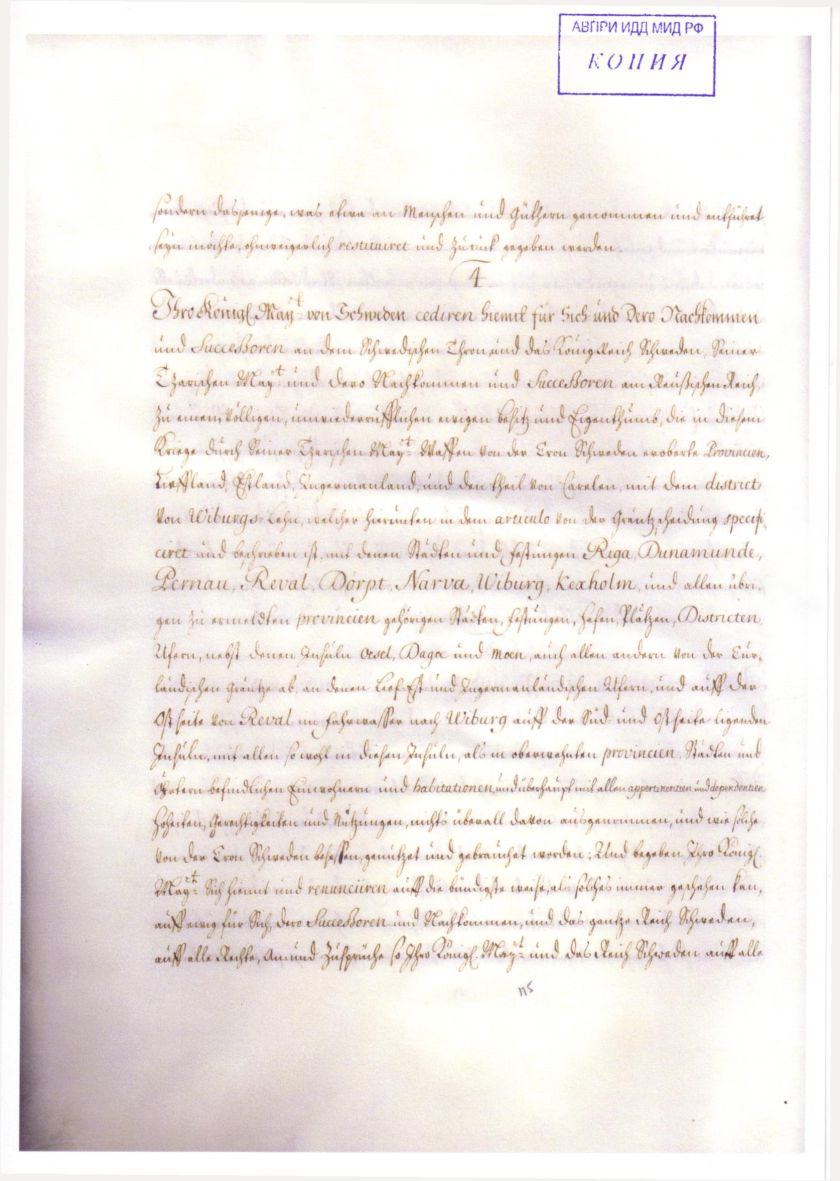 АВПРИ ИДД МИД РФ
КОПИЯ
sondern dasjenige, was etwa an Menschen und Güthern genommen und entführet
seyn möchte, ohnweigerlich restituiret und zurück gegeben werden.
4
Ihro Königl. Mayt. von Schweden cediren hiemit für Sich und Dero Nachkommen
und Successoren an dem Schwedischen Thron, und das Königreich Schweden, Seiner
Tzarischen Mayt. und Dero Nachkommen und Successoren am Reußischen Reich,
zu einem völligen, unwiederrufflichen ewigen besitz und Eigenthumb, die in diesem
Kriege durch Seiner Tzarischen Mayt. Waffen von der Cron Schweden eroberte Provincien,
Liefland, Estland, Ingermanland, und den theil von Carelen, mit dem district
von Wiburgs-Lehn, welcher hierunten in dem articulo von der Gräntzscheidung specifi-
ciret und beschrieben ist, mit denen Städten und Festungen Riga, Dunamunde,
Pernau, Reval, Dorpt, Narva, Wiburg, Kexholm, und allen übri-
gen zu ermeldten provincien gehörigen Städten, Festungen, Hafen, Plätzen, Districten
Ufern, nebst denen Insuln Oesel, Dagoe und Moen, auch allen andern von der Cur-
ländischen Gräntze ab, an denen Lief- Est- und Ingermanländischen Ufern, und auff der
Ostseite von Reval im Fahrwasser nach Wiburg auff der Süd- und Ostseite ligenden
Insuln, mit allen so wohl in diesen Insuln, als in oberwehnten provincien, Städten und
Örtern befindlichen Einwohnern und habitationen, und überhaupt mit allen appertinentien und dependentien
Hoheiten, Gerechtigkeiten und Nutzungen, nichts überall davon ausgenommen, und wie solche
von der Cron Schweden besessen, genutzet und gebrauchet worden; Und begeben Ihro Königl.
Mayt. Sich hiemit und renunciiren auff die bündigste weise, als solches immer geschehen kan,
auff ewig für Sich, Dero Successoren und Nachkommen, und das gantze Reich Schweden,
auff alle Rechte, An- und Zusprüche so Ihro Königl. Mayt. und das Reich Schweden auff alle